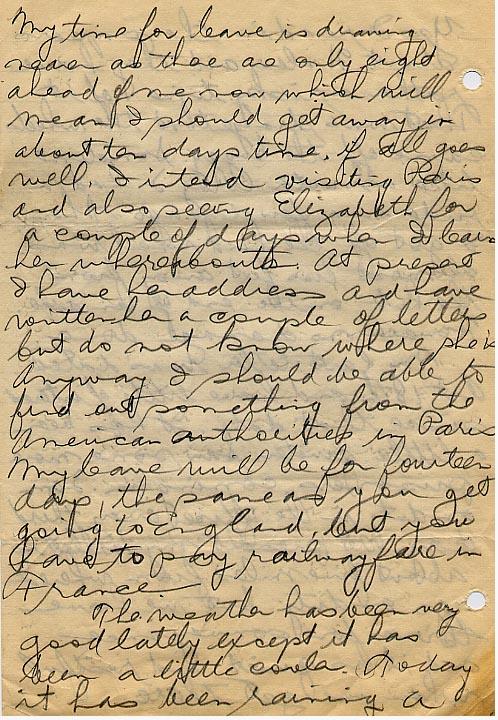 My time for leave is drawing
near as there are only eight
ahead of me now which will
mean I should get away in
about ten days time, if all goes
well. I intend visiting Paris
and also seeing Elizabeth for
a couple of days when I learn
her whereabouts. At present
I have her address and have
written her a couple of letters
but do not know where she is
Anyway I should be able to
find out something from the
American authorities in Paris
My leave will be for fourteen
days, the same as you get
going to England, but you
have to pay railway fare in
France.
The weather has been very
good lately except it has
been a little cools. Today
it has been raining a